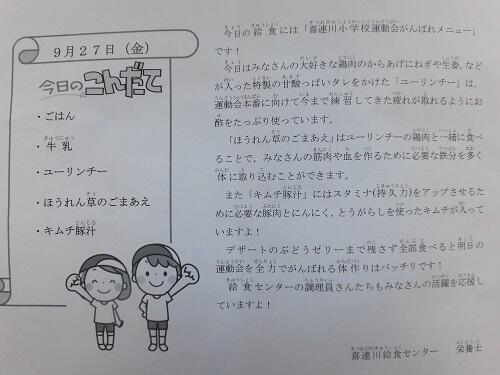 9月27日(金)
今日のこんだて
・ごはん
・牛乳
・ユーリンチー
・ほうれん草のごまあえ
・キムチ豚汁
今日の給食には「喜連川小学校運動会がんばれメニュー」
です!
今日はみなさんの大好きな鶏肉のからあげにねぎや生姜,など
が入った特製の甘酸っぱいタレをかけた「ユーリンチー」は,
運動会本番に向けて今まで練習してきた疲れが取れるようにお
酢をたっぷり使っています。
「ほうれん草のごまあえ」はユーリンチーの鶏肉と一緒に食べ
ることで,みなさんの筋肉や血を作るために必要な鉄分を多く
体に取り込むことができます。
また「キムチ豚汁」にはスタミナ(持久力)をアップさせるた
めに必要な豚肉とにんにく,とうがらしを使ったキムチが入って
いますよ!
デザートのぶどうゼリーまで残さず全部食べると明日の
運動会を全力でがんばれる体作りはバッチリです!
給食センターの調理員さんたちもみなさんの活躍を応援し
ていますよ!
喜連川給食センター 栄養士